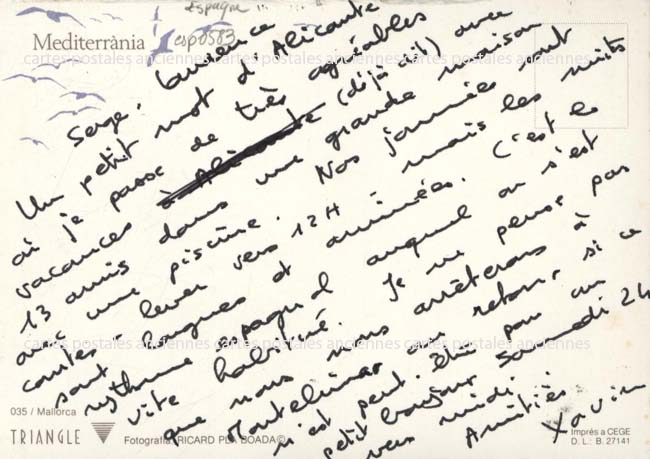 Espagne
esp8583
Mediterrània
Serge, Laurence
Un petit mot d'Alicante
où je passe de très agréables
vacances à Alicante (déjà dit) avec
13 amis dans une grande maison
avec une piscine. Nos journées sont
courtes - lever vers 12H mais les nuits
sont longues et animées. C'est le
rythme espagnol auquel on s'est
vite habitué. Je ne pense pas
que nous nous arrêterons à
Montélimar au retour, si ce
n'est peut être pour un
petit bonjour Samedi 24
vers midi.
Amitiés
Xavier
cartes postales anciennes cartes postales anciennes cartes postales anciennes
cartes postales anciennes cartes postales anciennes cartes postales anciennes
cartes postales anciennes cartes postales anciennes cartes postales anciennes
035 / Mallorca
TRIANGLE
Fotografia: RICARD PLA BOADA©
Imprés a CEGE
D. L.: B. 27141